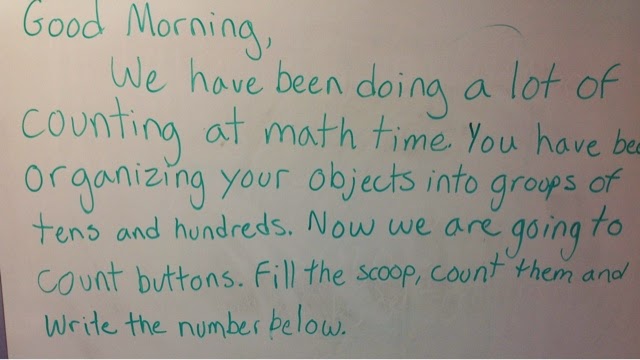 Good Morning,
We have been doing a lot of
counting at math time. You have bee
organizing your objects into groups of
tens and hundreds. Now we are going to
count buttons. Fill the scoop, count them and
write the number below.